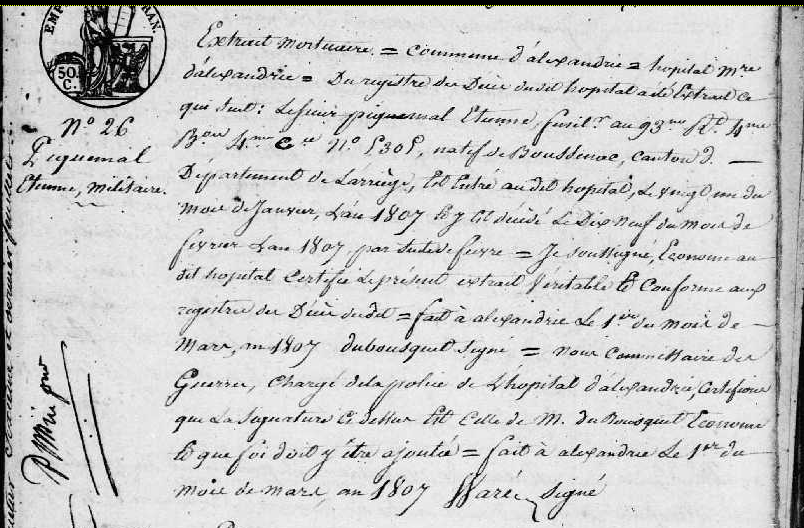 EMP FRAN.
50 C.
Extrait mortuaire. = Commune d'alexandrie = hopital Mre
d'alexandrie = Du registre des Décés dudit hopital a été Extrait ce
qui suit: Le sieur piquemal Etienne, fusilr au 93me Rt 4me
Bon 4me Cie N° 5305, natif de Boussenac, Canton d. —
Département de Larriège, Est Entré audit hopital, Le vingt un du
mois de Janvier, L'an 1807 Et y est décédé Le Dix neuf du mois de
fevrier L'an 1807 par suite de fievre = Je soussigné, Econome au
dit hopital Certifie Le présent extrait Véritable Et Conforme aux
registres des Décés dudit = fait à alexandrie Le 1er du mois de
Mars, an 1807 dubousquet signé = nous Commissaire des
Guerres, Chargé de la police de L'hopital d'alexandrie, Certifions
que La Signature Ci dessus Est Celle de M. du Bousquet Econome
Et que foi doit y être ajoutée = fait à alexandrie Le 1er du
mois de mars, an 1807 signé
N° 26
Piquemal
Etienne, militaire.